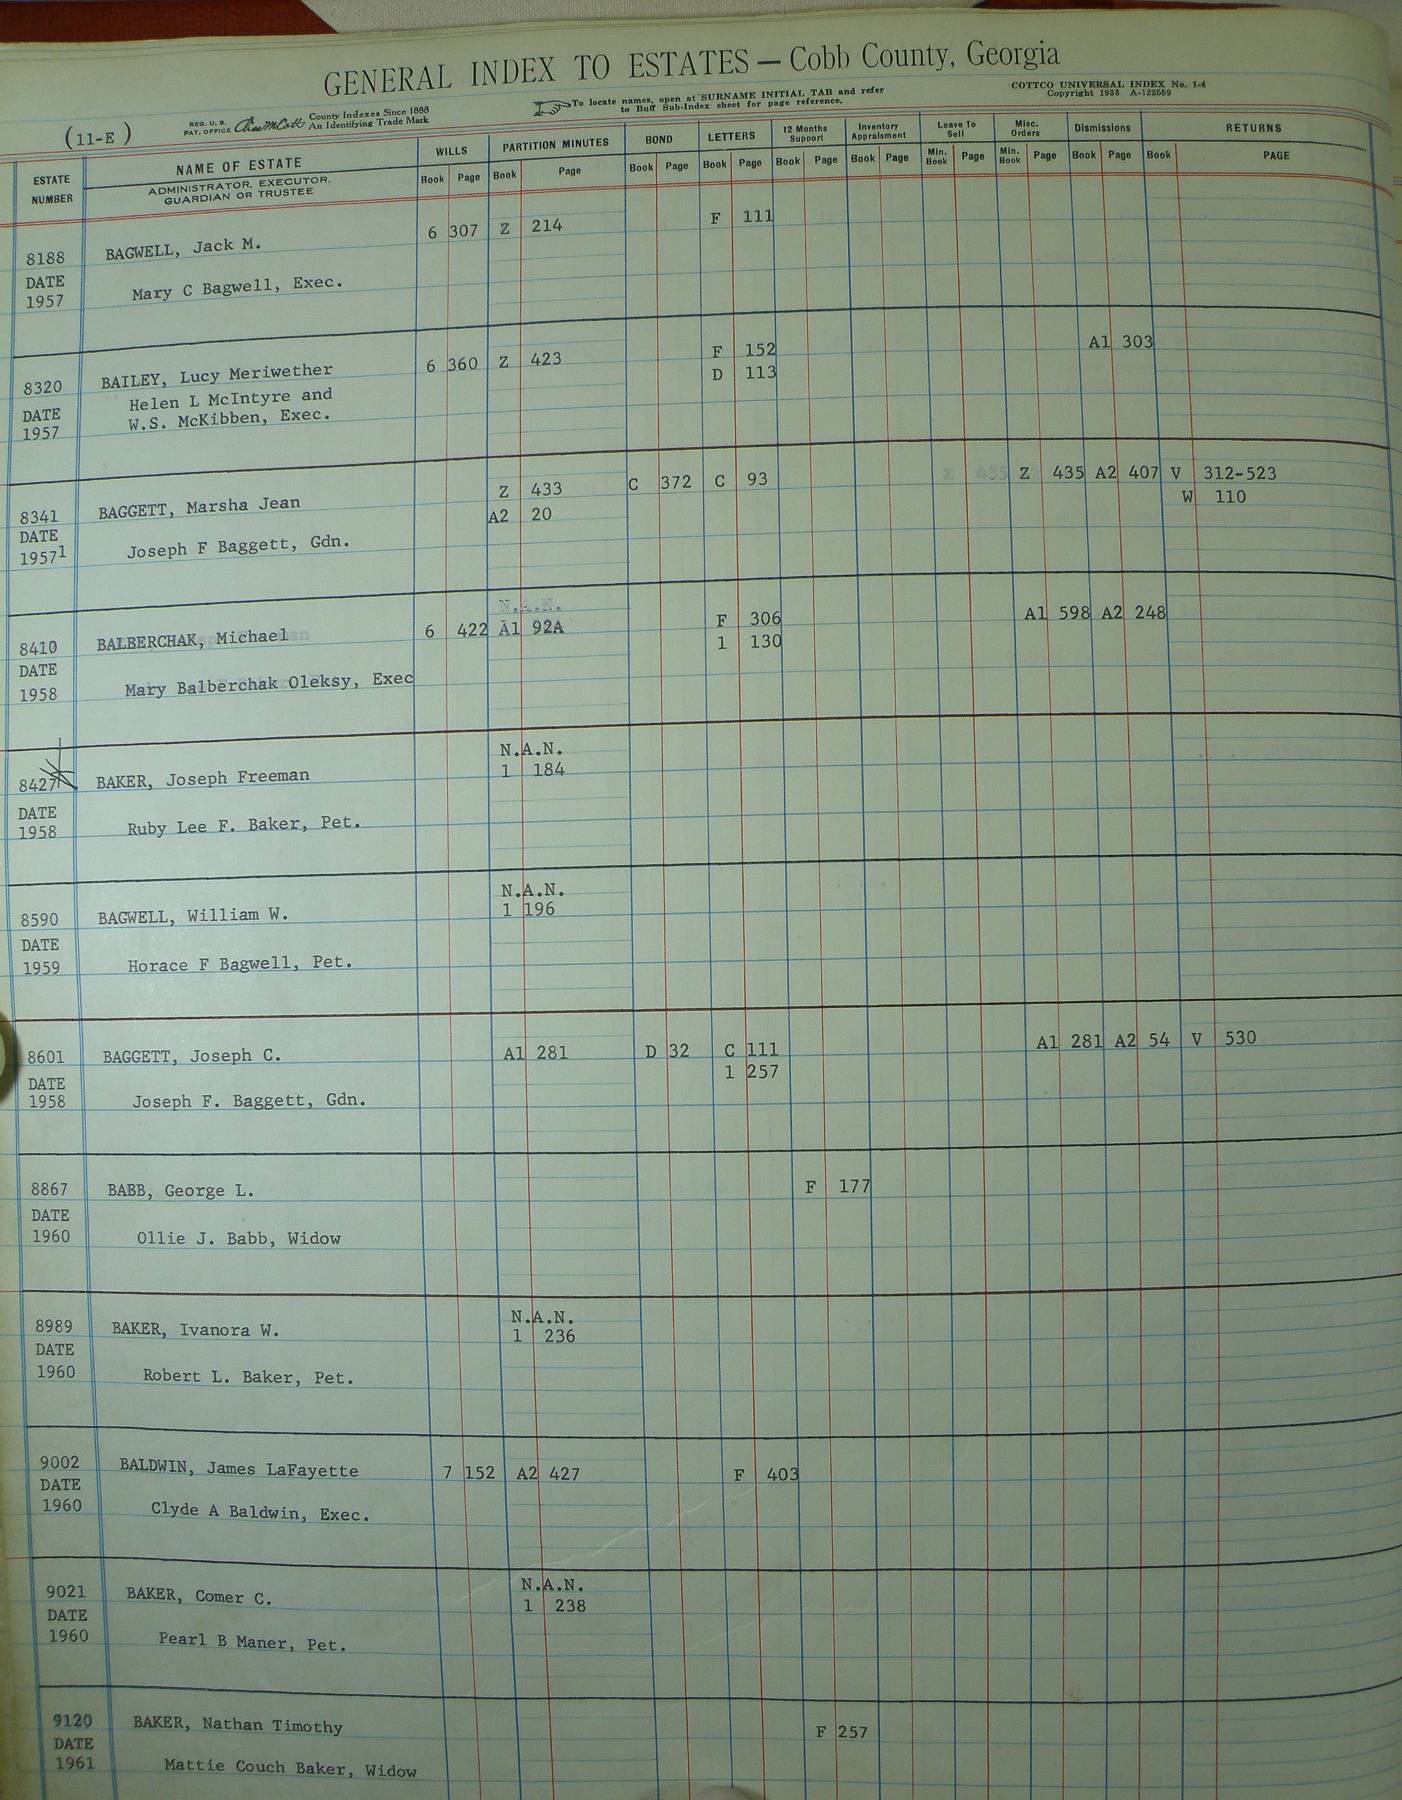 GENERAL INDEX TO ESTATES — Cobb County, Georgia
(11-E)
REG. U. S. PAT. OFFICE
County Indexes Since 1888
An Identifying Trade Mark
To locate names, open at SURNAME INITIAL TAB and refer
to Buff Sub-Index sheet for page reference.
COTTCO UNIVERSAL INDEX No. 1-4
Copyright 1933 A-122559
ESTATE NUMBER
NAME OF ESTATE
ADMINISTRATOR, EXECUTOR,
GUARDIAN OR TRUSTEE
WILLS PARTITION MINUTES BOND LETTERS 12 Months Support Inventory Appraisment Leave To Sell Misc. Orders Dismissions RETURNS
Book Page Book Page Book Page Book Page Book Page Book Page Min. Book Page Min. Book Page Book Page Book PAGE
8188 BAGWELL, Jack M. 6 307 Z 214 F 111
DATE
1957 Mary C Bagwell, Exec.
8320 BAILEY, Lucy Meriwether 6 360 Z 423 F 152 A1 303
Helen L McIntyre and D 113
DATE W.S. McKibben, Exec.
1957
8341 BAGGETT, Marsha Jean Z 433 C 372 C 93 Z 435 A2 407 V 312-523
A2 20 W 110
DATE
19571 Joseph F Baggett, Gdn.
N.A.N.
8410 BALBERCHAK, Michael 6 422 A1 92A F 306 A1 598 A2 248
1 130
DATE
1958 Mary Balberchak Oleksy, Exec
N.A.N.
8427 BAKER, Joseph Freeman 1 184
DATE
1958 Ruby Lee F. Baker, Pet.
N.A.N.
8590 BAGWELL, William W. 1 196
DATE
1959 Horace F Bagwell, Pet.
8601 BAGGETT, Joseph C. A1 281 D 32 C 111 A1 281 A2 54 V 530
1 257
DATE
1958 Joseph F. Baggett, Gdn.
8867 BABB, George L. F 177
DATE
1960 Ollie J. Babb, Widow
N.A.N.
8989 BAKER, Ivanora W. 1 236
DATE
1960 Robert L. Baker, Pet.
9002 BALDWIN, James LaFayette 7 152 A2 427 F 403
DATE
1960 Clyde A Baldwin, Exec.
N.A.N.
9021 BAKER, Comer C. 1 238
DATE
1960 Pearl B Maner, Pet.
9120 BAKER, Nathan Timothy F 257
DATE
1961 Mattie Couch Baker, Widow